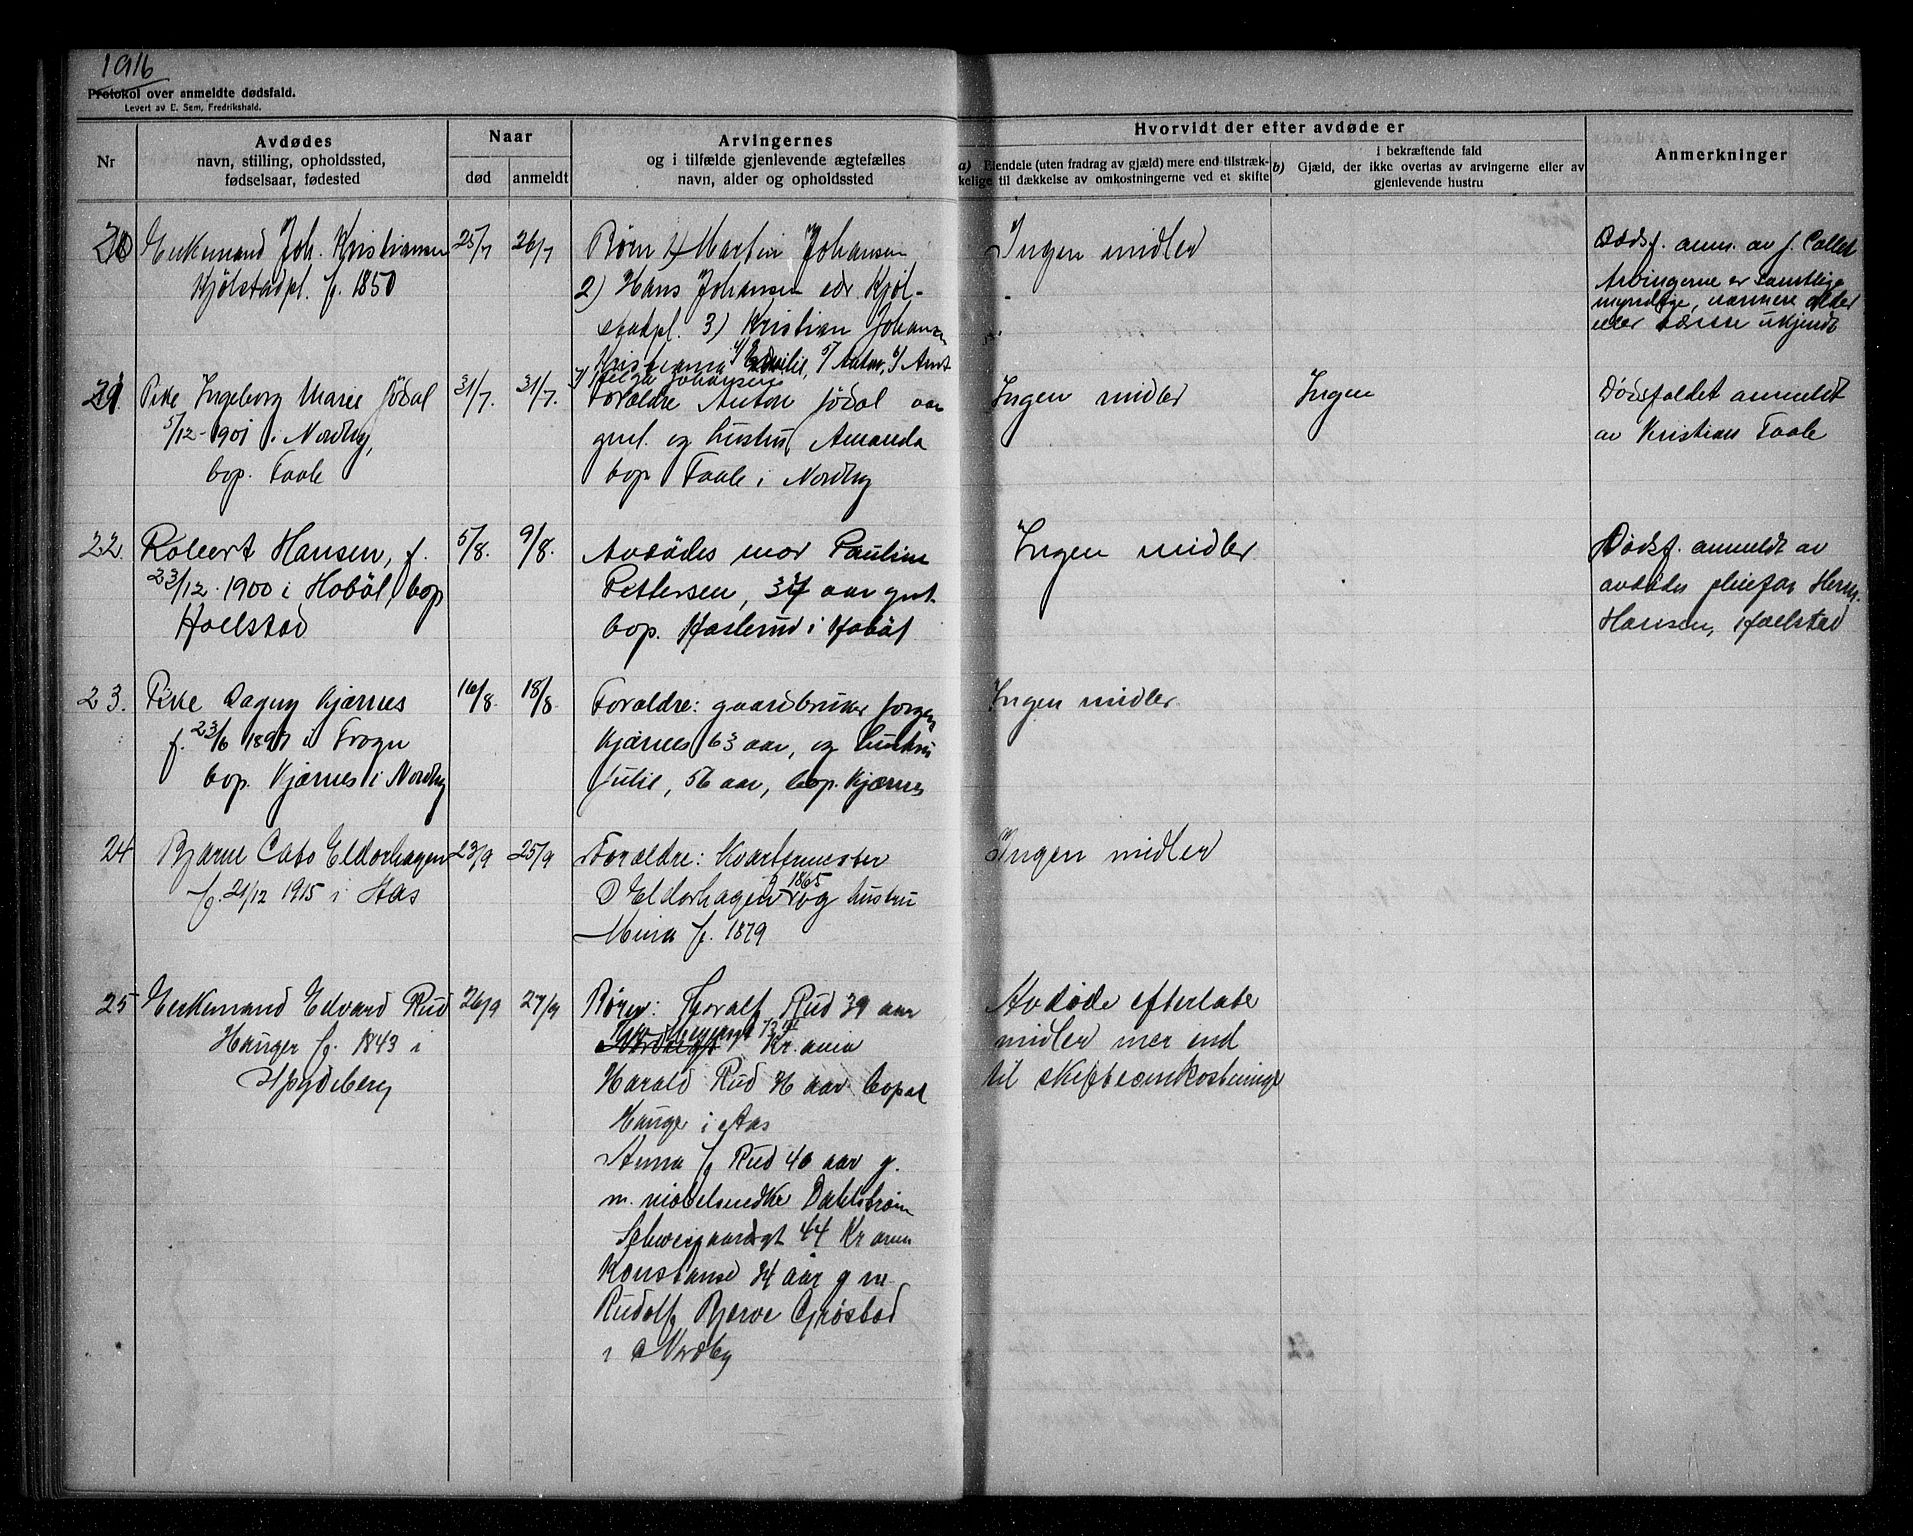 1916
Protokol over anmeldte dødsfald.
Levert av E. Sem, Fredrikshald.
Nr
Avdødes
navn, stilling, opholdssted,
fødselsaar, fødested
Naar
død
anmeldt
Arvingernes
og i tilfælde gjenlevende ægtefælles
navn, alder og opholdssted
Hvorvidt der efter avdøde er
a) Eiendele (uten fradrag av gjæld) mere end tilstræk-
kelige til dækkelse av omkostningerne ved et skifte
i bekræftende fald
b) Gjæld, der ikke overtas av arvingerne eller av
gjenlevende hustru
Anmerkninger
20
Enkemand Joh. Kristiansen
Kjölstadpl. f. 1850
25/7
26/7
Børn 1) Martin Johansen
2) Hans Johansen adr. Kjøl-
stadpl. 3) Kristian Johansen
4) Emilie, 5) Anton, 6)
7) Helga Johansens
Ingen midler
Dødsf. anm. av J. Collet
Arvingerne er samtlige
myndige, nærmere alder
eller adresse ukjendt
21.
Pike Ingeborg Marie Jödal
5/12-1901 i Nordby,
bop. Taale
31/7.
31/7.
Foræeldre Anton Jödal
gml. og hustru Amanda
bop Taale i Nordby
Ingen midler
Ingen
Dödsfaldet anmeldt
av Kristian Taale
22.
Robert Hansen, f.
23/12-1900 i Hobøl, bop
Holstad
5/8.
9/8.
Avdødes mor Pauline
Pettersen, 37 aar gml.
bop. Haslerud i Hobøl
Ingen midler
Dødsf. anmeldt av
avdødes pleiefar Herm.
Hansen, Holstad
23.
Pike Dagny Kjærnes
f. 23/6 1897 i Frogn
bop. Kjærnes i Nordby
16/8.
18/8.
Foræeldre: gaardbruker Jørgen
Kjærnes 63 aar, og hustru
Julie, 56 aar, bop. Kjærnes
Ingen midler
24
Bjarne Cato Eldorhagen
f. 21/12 1915 i Aas
23/9
25/9
Foræeldre: Kvartermester
O Eldorhagen f 1865 og hustru
Mina f. 1879
Ingen midler
25
Enkemand Edvard Rud
Hauger f. 1843 i
Spydeberg
26/9
27/9
Børn: Thoralf Rud 39 aar
Kr. ania
Harald Rud 36 aar bopæl
Hauger i Aas
Anna f Rud 40 aar g.
m. møbelsnedker Dahlstrøm
Schweigaardsgt 44 Kr ania
Konstanse 34 aar g m
Rudolf Bjerve Grøstad
i Nordby
Avdøde efterlate
midler mer end
til skifteomkostninge